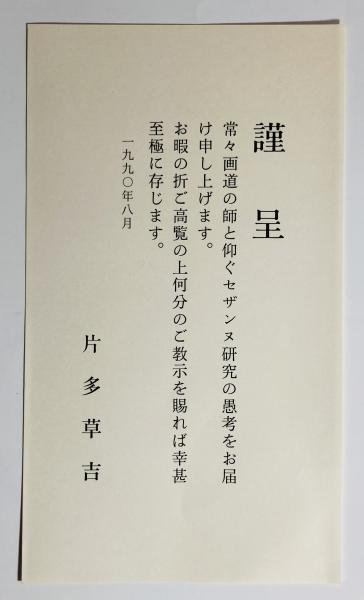 謹呈
常々画道の師と仰ぐセザンヌ研究の愚考をお届
け申し上げます。
お暇の折ご高覧の上何分のご教示を賜れば幸甚
至極に存じます。
一九九〇年八月
片多草吉